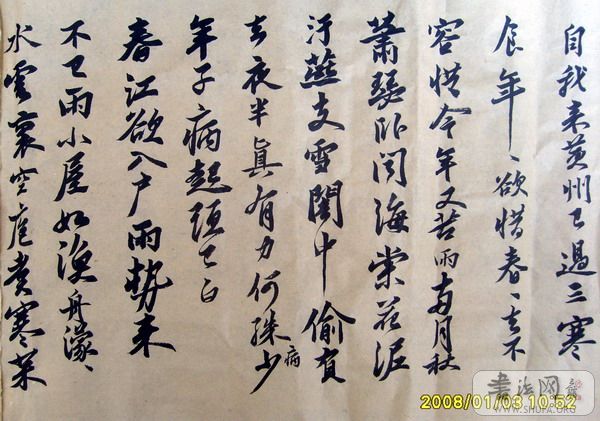 自我来黄州已過三寒
食年〻欲惜春〻去不
容惜今年又苦雨兩月秋
蕭瑟卧闻海棠花泥
汙燕支雪闇中偷負
去夜半真有力何殊少
病
年子病起頭已白
春江欲入户雨势来
不已雨小屋如漁舟濛〻
水雲裏空庖煮寒菜
2008/01/03 10:52
書法网
WWW.SHUFA.ORG